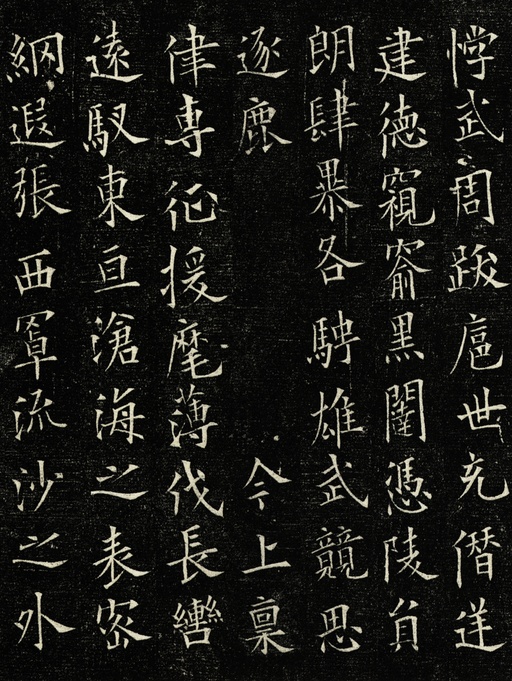 悖武周跋扈世充僭逆
建德窺窬黑闥憑陵負
朗肆暴各騁雄武競思
逐鹿　　　　今上稟
律專征援麾薄伐長轡
遠馭東亘滄海之表密
網遐張西罩流沙之外